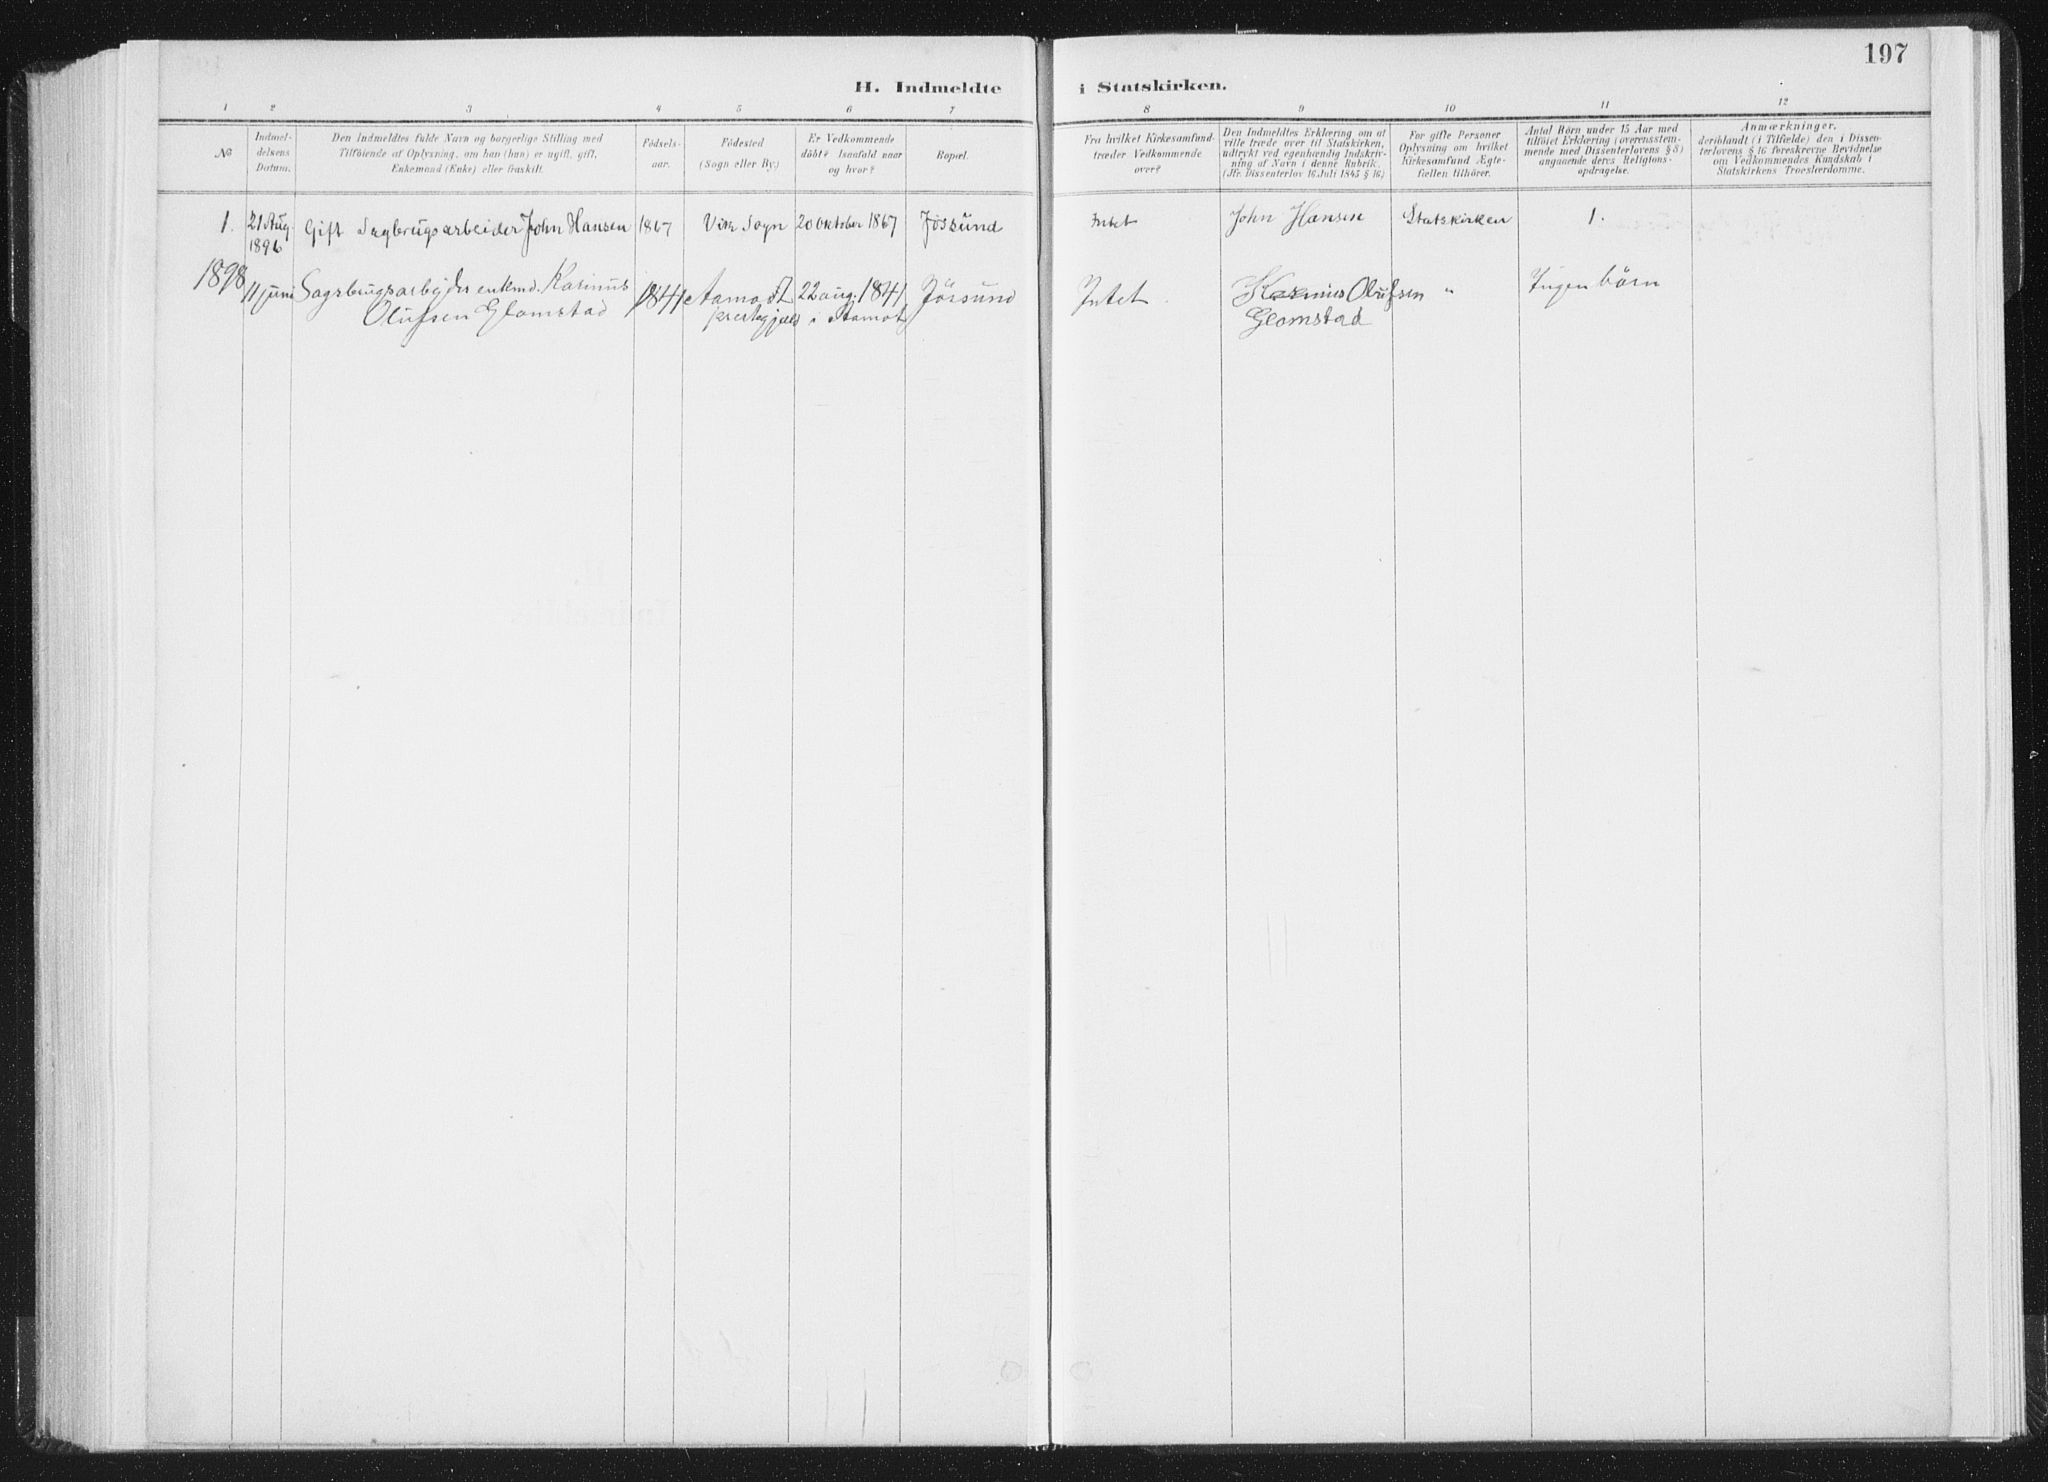 197
H. Indmeldte i Statskirken.
1 2 3 4 5 6 7 8 9 10 11 12
№
Indmel-
delsens
Datum.
Den Indmeldtes fulde Navn og borgerlige Stilling med
Tilföiende af Oplysning, om han (hun) er ugift, gift,
Enkemand (Enke) eller fraskilt.
Födsels-
aar.
Födested
(Sogn eller By.)
Er Vedkommende
döbt? Isaafald naar
og hvor?
Bopæl.
Fra hvilket Kirkesamfund
træder Vedkommende
over?
Den Indmeldtes Erklæring om at
ville træde over til Statskirken,
udtrykt ved egenhændig Indskriv-
ning af Navn i denne Rubrik.
(Jfr. Dissenterlov 16 Juli 1845 § 16)
For gifte Personer
Oplysning om hvilket
Kirkesamfund Ægte-
fællen tilhörer.
Antal Börn under 15 Aar med
tilföiet Erklæring (overensstem-
mende med Dissenterlovens § 8)
angaaende deres Religions-
opdragelse.
Anmærkninger,
deriblandt (i Tilfælde) den i Dissen-
terlovens § 16 foreskrevne Bevidnelse
om Vedkommendes Kundskab i
Statskirkens Troeslærdomme.
1. 21 Aug. Gift Sagbrugsarbeider John Hansen 1867 Vik Sogn 20 Oktober 1867 Jössund Intet John Hansen Statskirken 1.
1896
1898 11 juni Sagsbrugsarbejder enkmd. Karinus 1841 Aamodt 22 aug. 1841 Jössund Intet. Karinus Olufsen " Ingen börn
Olufsen Glomstad prestegjæld i Aamot Glomstad